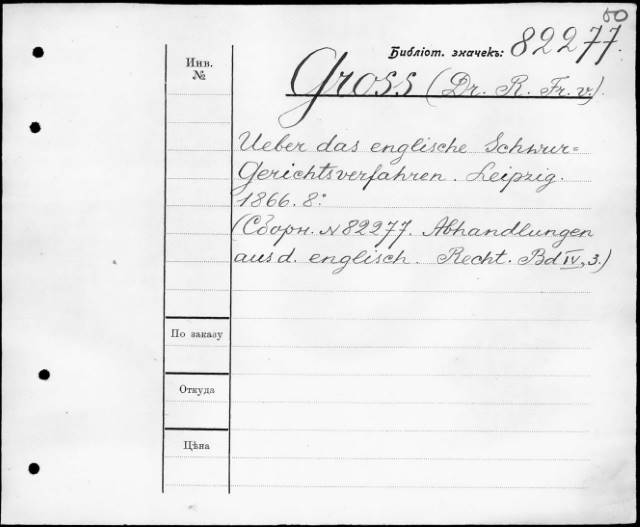 50
Библіот. значекъ: 82277.
Инв.
№
Gross (Dr. R. Fr. v.)
Ueber das englische Schwur=
Gerichtsverfahren. Leipzig.
1866. 8º
(Сборн. № 82277. Abhandlungen
aus d. englisch. Recht. Bd IV, 3.)
По заказу
Откуда
Цѣна